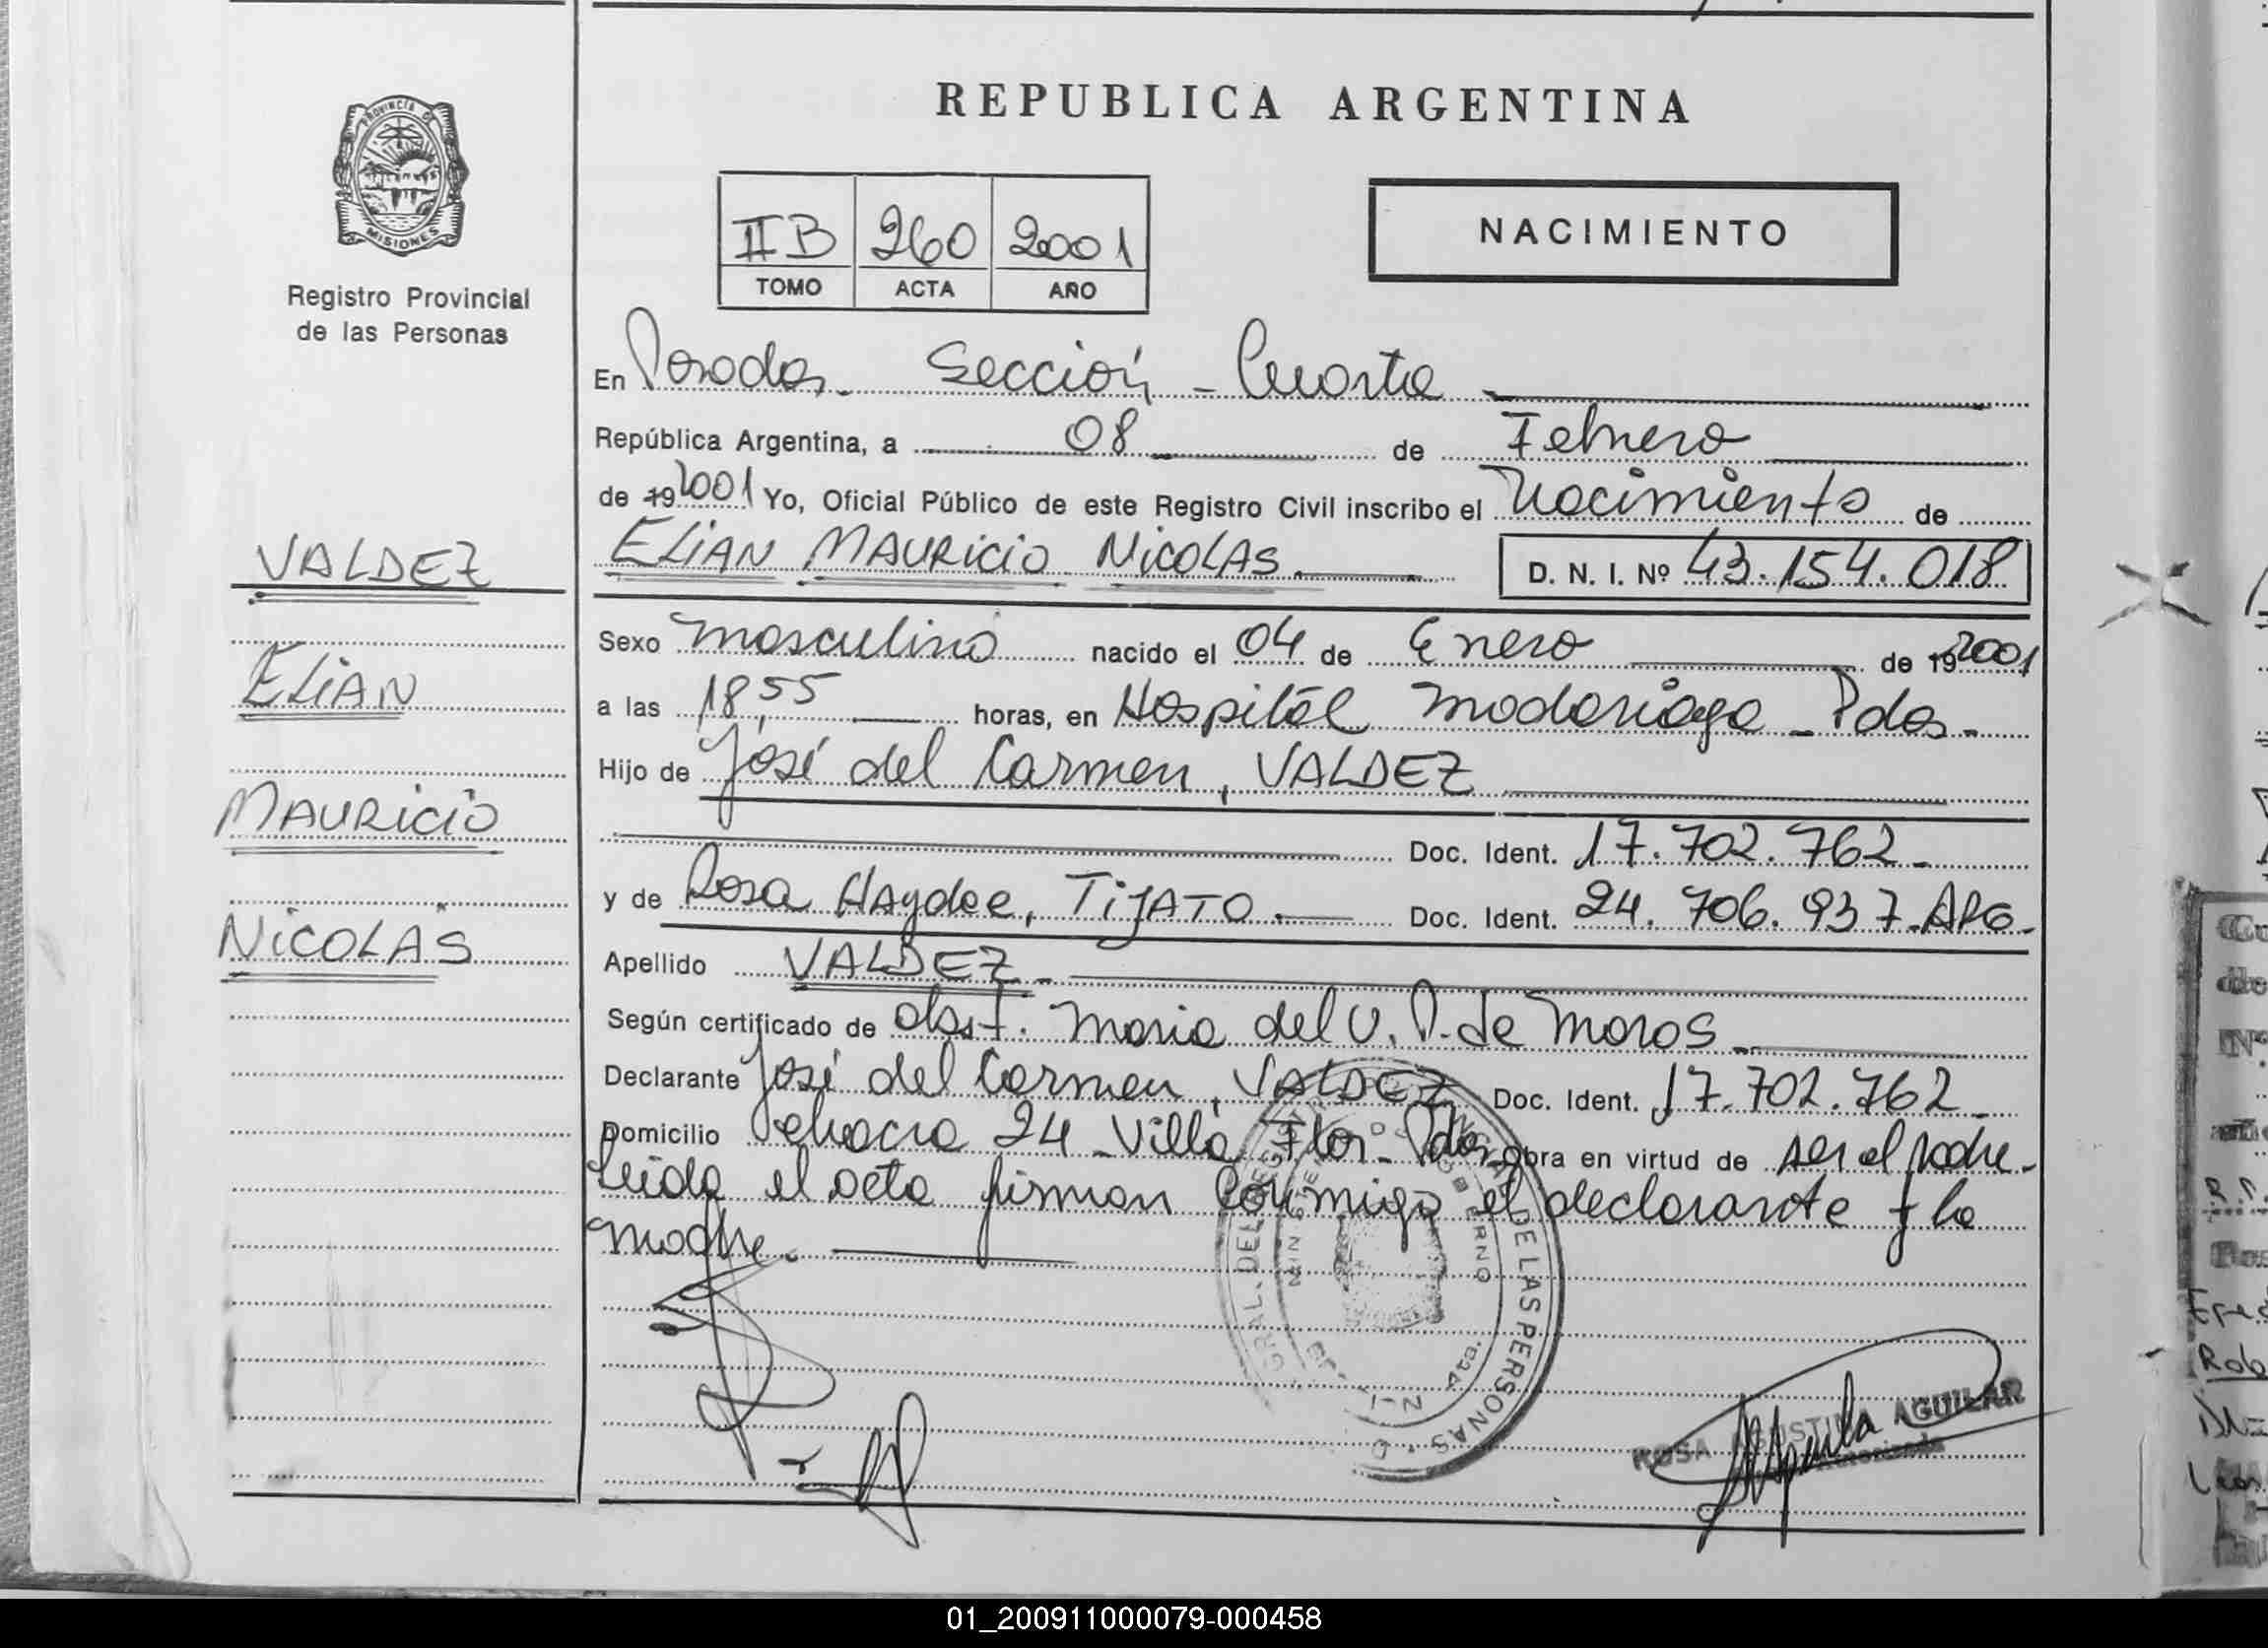 REPUBLICA ARGENTINA
PROVINCIA DE
MISIONES
Registro Provincial
de las Personas
IIB 260 2001
TOMO ACTA AÑO
NACIMIENTO
En Posadas. Sección - Cuarta
República Argentina, a 08 de Febrero
de 19 2001 Yo, Oficial Público de este Registro Civil inscribo el Nacimiento de
ELIAN MAURICIO NICOLAS. D. N. I. Nº 43.154.018
VALDEZ
ELIAN
MAURICIO
NICOLAS
Sexo masculino nacido el 04 de Enero de 19 2001
a las 18,55 horas, en Hospital Madariaga - Pdas-
Hijo de José del Carmen, VALDEZ
Doc. Ident. 17.702.762-
y de Rosa Haydee, TIJATO. Doc. Ident. 24.706.937-ARG-
Apellido VALDEZ-
Según certificado de obst. Maria del V. P. de Moros-
Declarante José del Carmen, VALDEZ Doc. Ident. 17.702.762-
Domicilio 24 - Villa Flor - Pdas- Obra en virtud de ser el padre-
Leida el acta firman conmigo el declarante y la
madre.
GRAL. DEL DE LAS PERSONAS
ROSA AGUSTINA AGUILAR
01_200911000079-000458